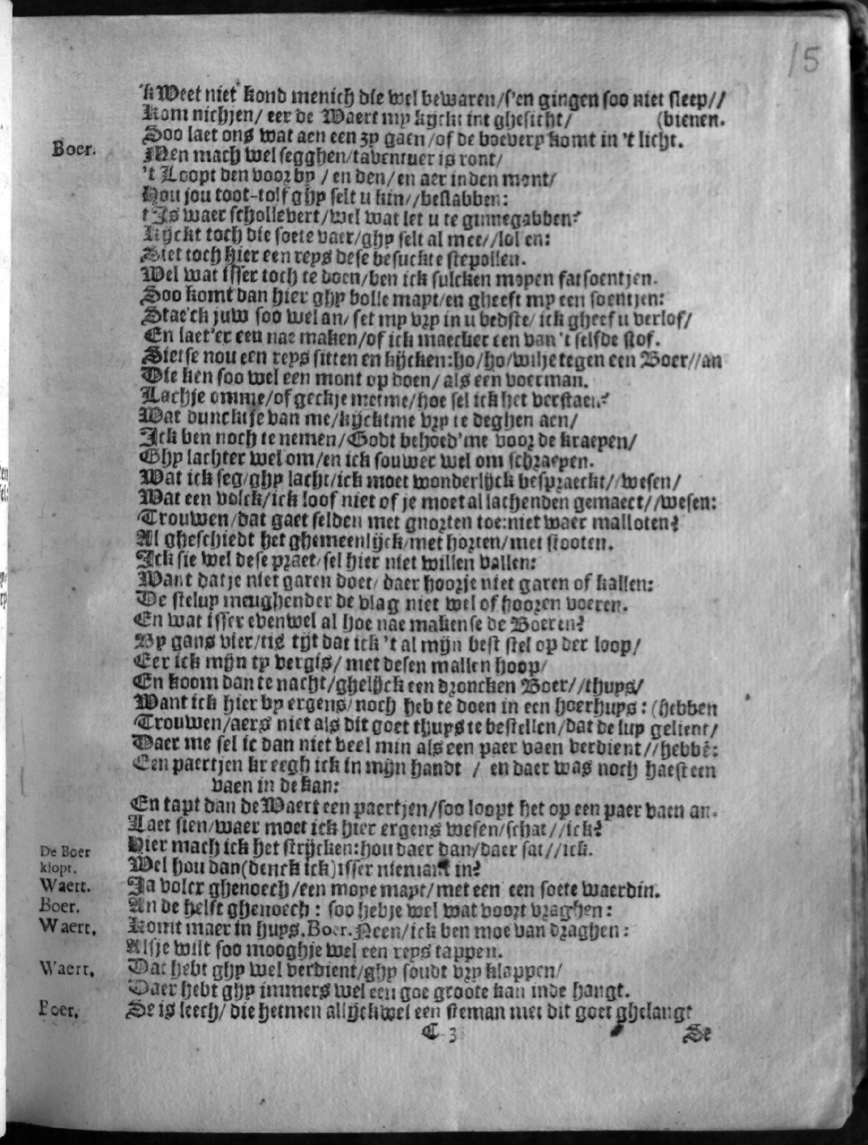 15
'k Weet niet kond menich die wel bewaren/s'en gingen soo niet sleep//
Kom nichjen/ eer de Waert my kijckt int ghesicht/ (dienen.
Soo laet ons wat aen een zy gaen/of de boevery komt in 't licht.
Boer. Men mach wel segghen/tavontuer is ront/
't Loopt den voor by / en den/en aer inden mont/
Hou jou toot-tolf ghy selt u kin//beslabben:
t'Is waer schollevert/wel wat let u te ginnegabben?
Kijckt toch die soete vaer/ghy selt al met//lol en:
Siet toch hier een reys dese besuckte stepollen.
Wel wat isser toch te doen/ben ick sulcken mopen fatsoentjen.
Soo komt dan hier ghy bolle mayt/en gheeft my een soentjen:
Stae'ck juw soo wel an/ set my vry in u bedste/ ick gheef u verlof/
En laet'er een nae maken/of ick maecker een van 't selfde stof.
Sietse nou een reys sitten en kijcken:ho/ho/wilje tegen een Boer//an
Die ken soo wel een mont op doen/ als een voerman.
Lachje omme/of geckje metme/hoe sel ick het verstaen?
Wat dunckt je van me/kijcktme vry te deghen aen/
Ick ben noch te nemen/Godt behoed'me voor de kraepen/
Ghy lachter wel om/en ick souwer wel om schraepen.
Wat ick seg/ghy lacht/ick moet wonderlijck bespraeckt//wesen/
Wat een volck/ick loof niet of je moet al lachenden gemaect//wesen:
Trouwen/dat gaet selden met gnorten toe:niet waer malloten?
Al gheschiedt het ghemeenlijck/met horten/met stooten.
Ick sie wel dese praet/sel hier niet willen vallen:
Want dat je niet garen doet/ daer hoorje niet garen of kallen:
De stelup meughender de vlag niet wel of hooren voeren.
En wat isser evenwel al hoe nae makense de Boeren?
By gans vier/tis tijt dat ick 't al mijn best stel op der loop/
Eer ick mijn ty vergis/ met desen mallen hoop/
En koom dan te nacht/ghelijck een droncken Boer//thuys/
Want ick hier by ergens/noch heb te doen in een hoerhuys: (hebben
Trouwen/aers niet als dit goet thuys te bestellen/dat de luy gelient/
Daer me sel ic dan niet veel min als een paer vaen verdient//hebbē:
Een paertjen kreegh ick in mijn handt / en daer was noch haest een
vaen in de kan:
En tapt dan de Waert een paertjen/soo loopt het op een paer vaen an.
Laet sien/waer moet ick hier ergens wesen/schat//ick?
Hier mach ick het strijcken:hou daer dan/daer sat//ick.
De Boer klopt. Wel hou dan(denck ick)isser niemant in?
Waert. Ja volcx ghenoech/een moye mayt/met een een soete waerdin.
Boer. An de helft ghenoech: soo hebje wel wat voort vraghen:
Waert. Komt maer in huys. Boer. Neen/ick ben moe van draghen:
Alsje wilt soo mooghje wel een reys tappen.
Waert. Dat hebt ghy wel verdient/ghy soudt vry klappen/
Daer hebt ghy immers wel een goe groote kan inde hangt.
Boer. Se is leech/ die hetmen allijckwel een sieman met dit goet ghelangt
C 3 Se